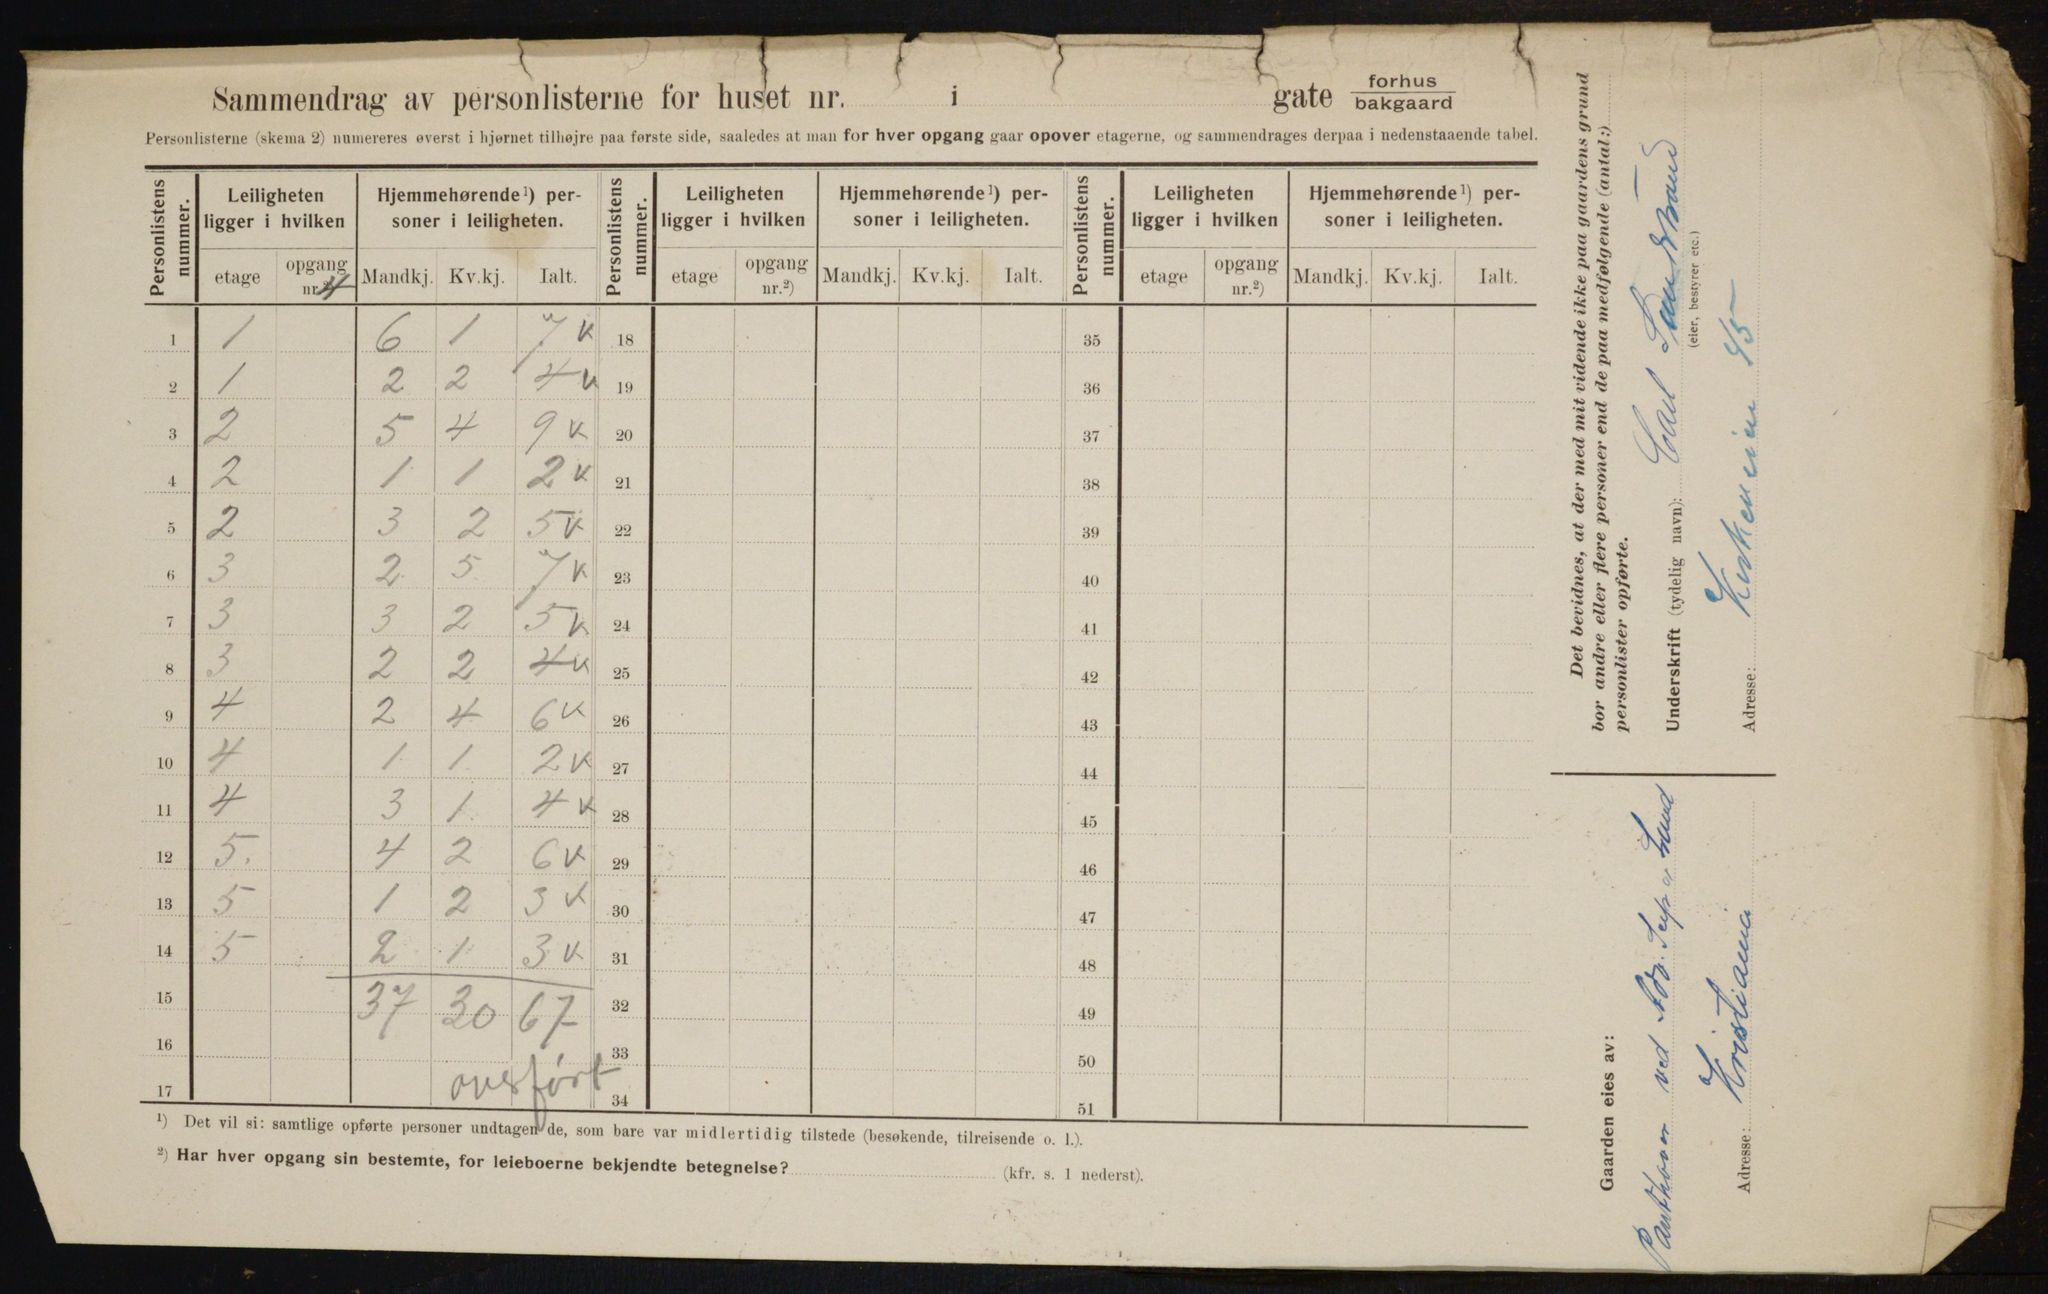 Sammendrag av personlisterne for huset nr. i gate forhus / bakgaard
Personlisterne (skema 2) numereres øverst i hjørnet tilhøjre paa første side, saaledes at man for hver opgang gaar opover etagerne, og sammendrages derpaa i nedenstaaende tabel.
Personlistens nummer. Leiligheten ligger i hvilken Hjemmehørende¹) personer i leiligheten. Personlistens nummer. Leiligheten ligger i hvilken Hjemmehørende¹) personer i leiligheten. Personlistens nummer. Leiligheten ligger i hvilken Hjemmehørende¹) personer i leiligheten.
etage opgang nr.²) Mandkj. Kv.kj. Ialt. etage opgang nr.²) Mandkj. Kv.kj. Ialt. etage opgang nr.²) Mandkj. Kv.kj. Ialt.
4
1 1 6 1 7 v 18 35
2 1 2 2 4 v 19 36
3 2 5 4 9 v 20 37
4 2 1 1 2 v 21 38
5 2 3 2 5 v 22 39
6 3 2 5 7 v 23 40
7 3 3 2 5 v 24 41
8 3 2 2 4 v 25 42
9 4 2 4 6 v 26 43
10 4 1 1 2 v 27 44
11 4 3 1 4 v 28 45
12 5. 4 2 6 v 29 46
13 5 1 2 3 v 30 47
14 5 2 1 3 v 31 48
15 37 30 67 32 49
16 33 50
17 overført 34 51
¹) Det vil si: samtlige opførte personer undtagen de, som bare var midlertidig tilstede (besøkende, tilreisende o. l.).
²) Har hver opgang sin bestemte, for leieboerne bekjendte betegnelse? (kfr. s. 1 nederst).
Det bevidnes, at der med mit vidende ikke paa gaardens grund
bor andre eller flere personer end de paa medfølgende (antal:)
personlister opførte.
Underskrift (tydelig navn): Carl
(eier, bestyrer etc.)
Adresse: 45
Gaarden eies av:
ved Lund
Adresse: Kristiania